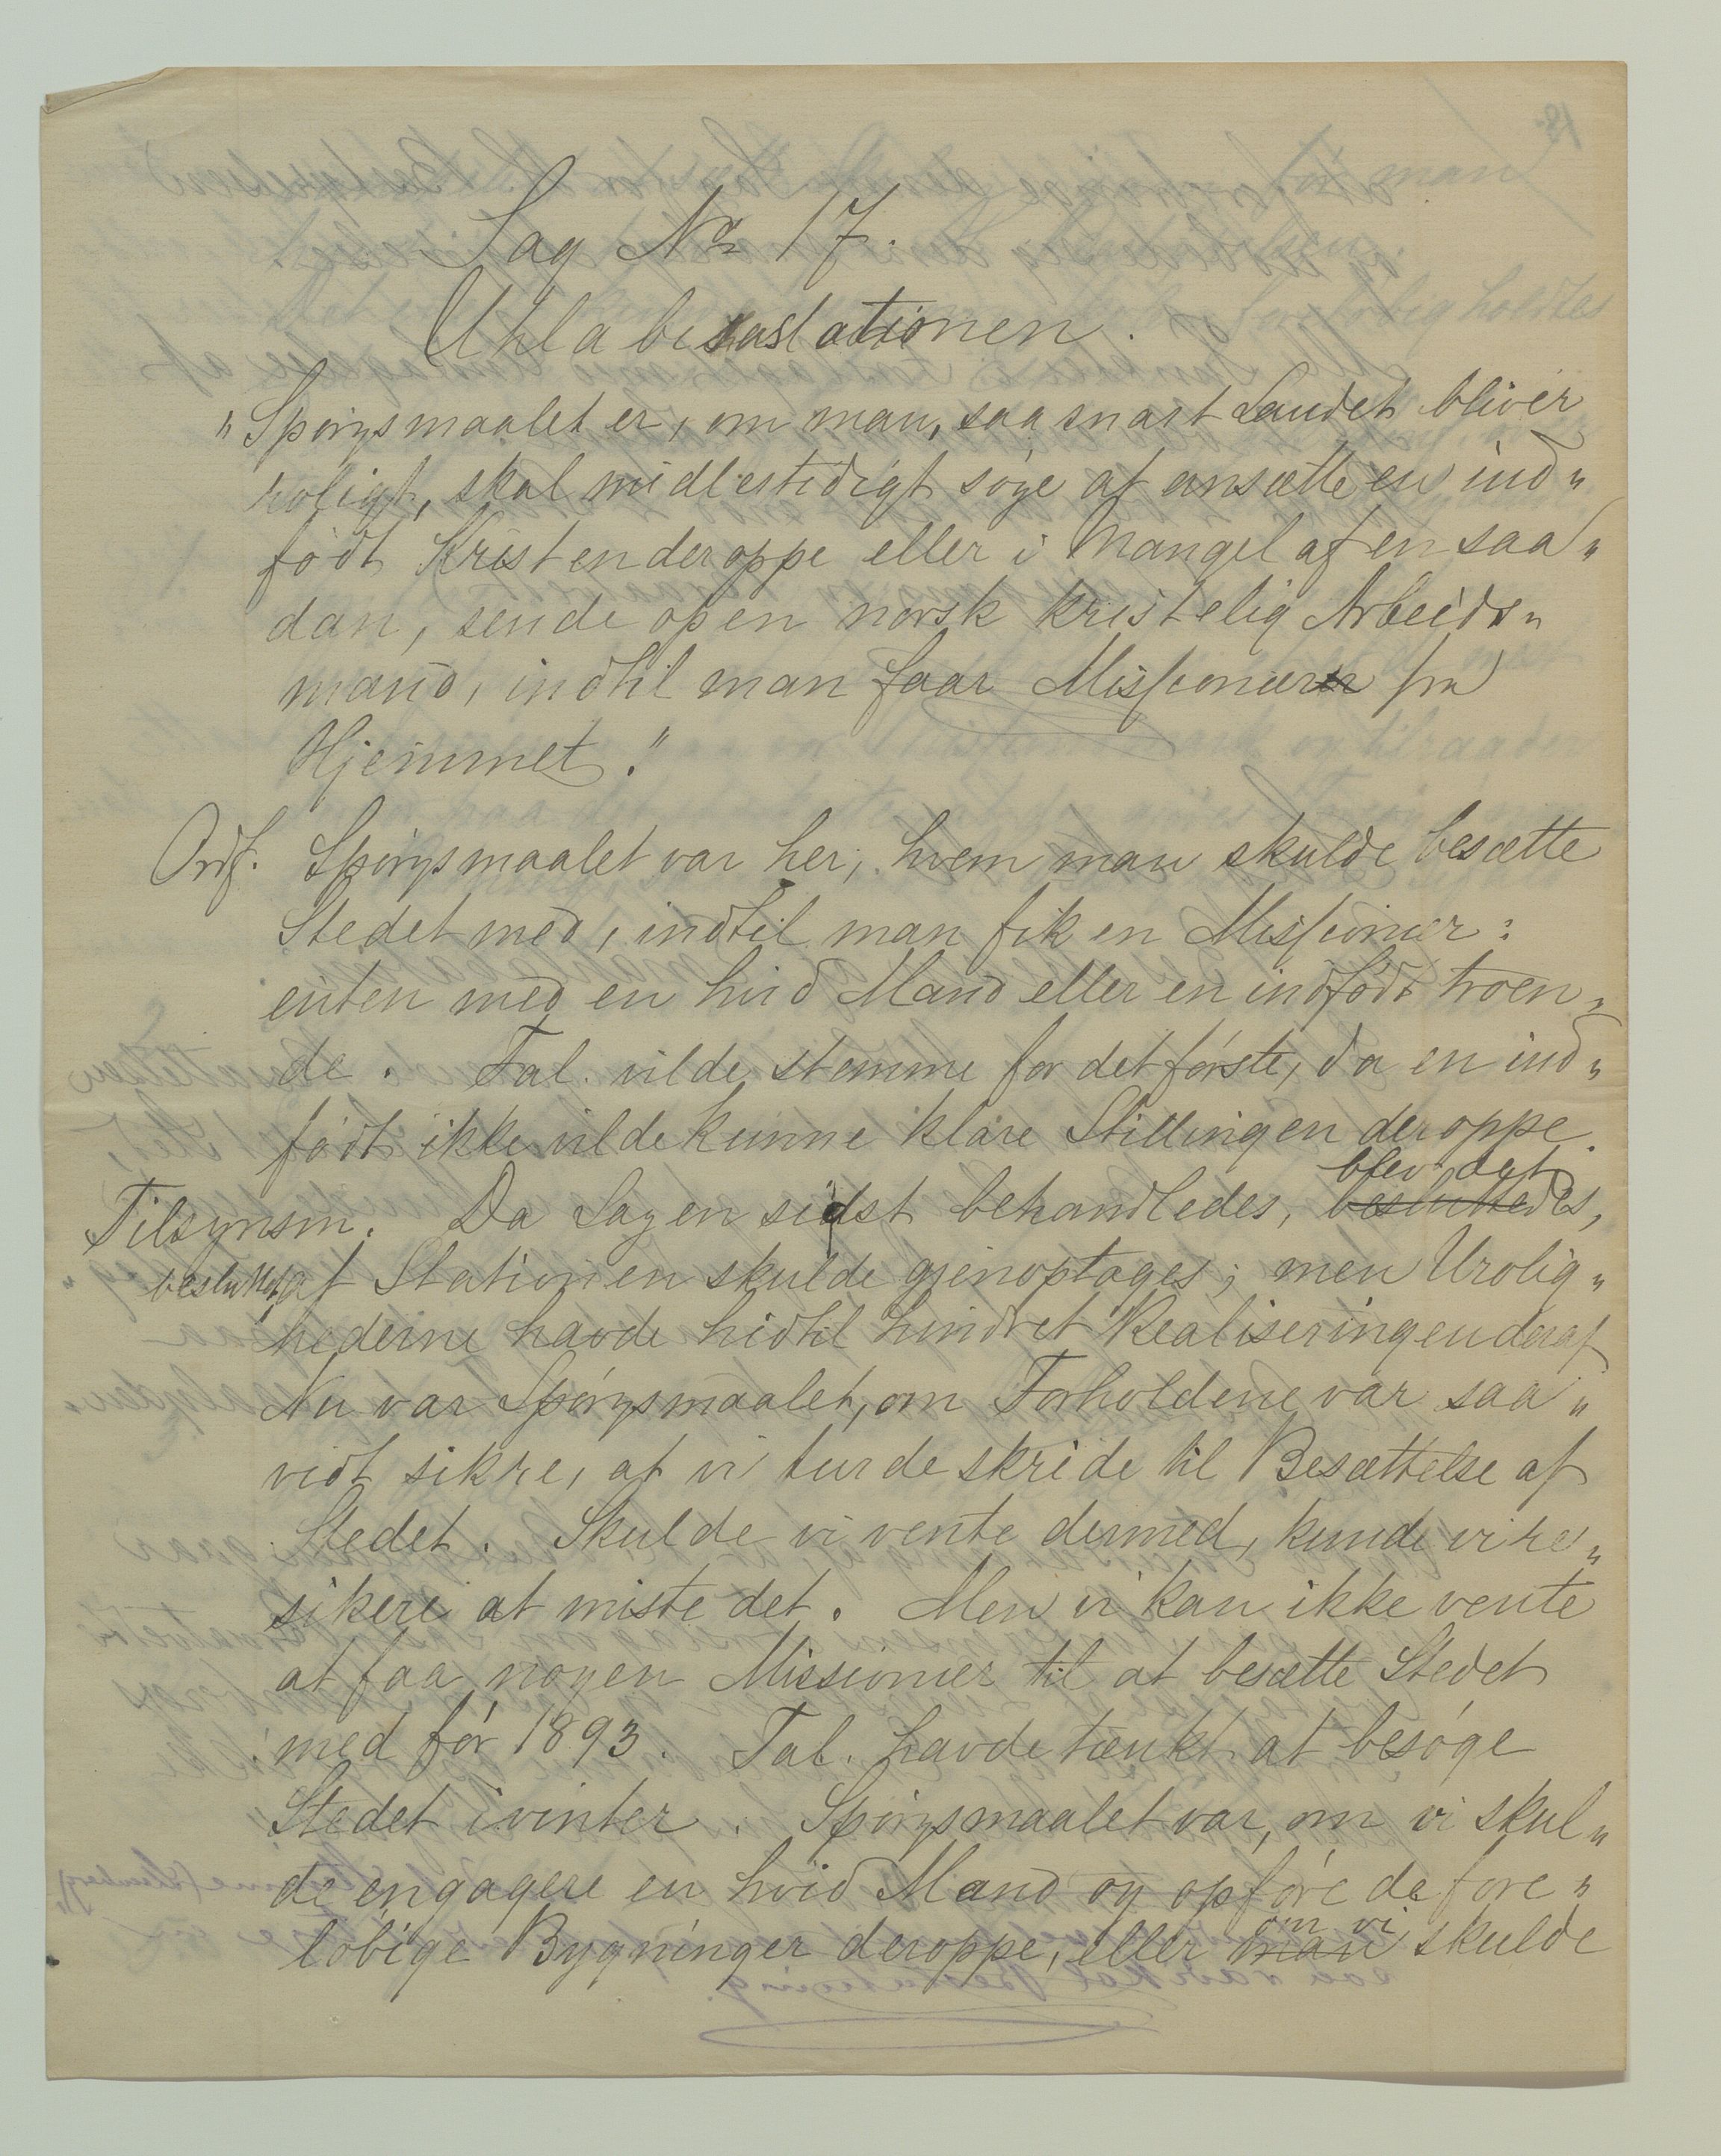 Sag No 17.
Uhlabisastationen.
"Spørgsmaalet er, om man, saasnart Landet bliver
roligt, skal midlertidigt søge at ansætte en ind„
født Kristen deroppe eller i Mangel af en saa„
dan, sende op en norsk kristelig Arbeids„
mand, indtil man faar Missionær fra
Hjemmet."
Ordf. Spørgsmaalet var her, hvem man skulde besætte
Stedet med, indtil man fik en Missionær:
enten med en hvid Mand eller en indfødt troen„
de. Tal. vilde stemme for det første, da en ind„
født ikke vilde kunne klare Stillingen deroppe.
blev det
Tilsynsm. Da Sagen sidst behandledes, besluttedes,
besluttet, at Stationen skulde gjenoptages; men Urolig„
hederne havde hidtil hindret Realiseringen deraf
Nu var Spørgsmaalet, om Forholdene var saa„
vidt sikre, at vi turde skride til Besættelse af
Stedet. Skulde vi vente dermed, kunde vi re„
sikere at miste det. Men vi kan ikke vente
at faa nogen Missionær til at besætte Stedet
med før 1893. Tal. havde tænkt at besøge
Stedet i vinter. Spørgsmaalet var, om vi skul„
de engagere en hvid Mand og opføre de fore„
om vi
løbige Bygninger deroppe, eller man skulde